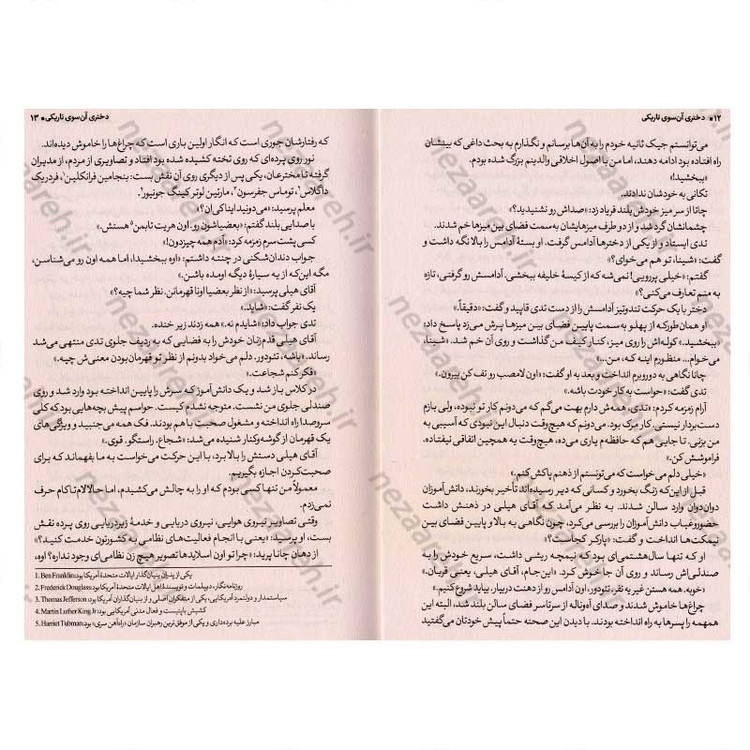 ۱۲ • دختری آن‌سوی تاریکی
می‌توانستم جیک ثانیه خودم را به آن‌ها برسانم و نگذارم به بحث داغی که بینشان
راه افتاده بود ادامه دهند، اما من با اصول اخلاقی والدینم بزرگ شده بودم.
«ببخشید!»
تکانی به خودشان ندادند.
چانا از سر میز خودش بلند فریاد زد: «صداش رو نشنیدید؟»
چشمانشان گرد شد و از دو طرف میزهایشان به سمت فضای بین میزها خم شدند.
تدی ایستاد و از یکی از دخترها آدامس گرفت. او بستهٔ آدامس را بالا نگه داشت و
گفت: «شینا، تو هم می‌خوای؟»
گفتم: «خیلی پررویی! نمی‌شه که از کیسهٔ خلیفه ببخشی. آدامسش رو گرفتی، تازه
به منم تعارف می‌کنی؟»
دختر با یک حرکت تندوتیز آدامسش را از دست تدی قاپید و گفت: «دقیقاً.»
او همان‌طور که از پهلو به سمت پایین فضای بین میزها پرش می‌زد پاسخ داد:
«ببخشید.» کوله‌اش را روی میز، کنار کیف من گذاشت و روی آن خم شد. «شینا،
می‌خوام... منظورم اینه که، من...»
چانا نگاهی به دوروبرم انداخت و بعد به او گفت: «اون لامصب رو تف کن بیرون.»
تدی گفت: «حواست به کار خودت باشه.»
آرام زمزمه کردم: «تدی، همه‌ش دارم بهت می‌گم که می‌دونم کار تو نبوده، ولی بازم
دست‌بردار نیستی. کار مرک بود. می‌دونم که هیچ‌وقت دنبال این نبودی که آسیبی به
من بزنی. تا جایی هم که حافظه‌م یاری می‌ده، هیچ‌وقت یه همچین اتفاقی نیفتاده.
فراموشش کن.»
«خیلی دلم می‌خواست که می‌تونستم از ذهنم پاکش کنم.»
قبل از این‌که زنگ بخورد و کسانی که دیر رسیده‌اند تأخیر بخورند، دانش‌آموزان
دوان‌دوان وارد سالن شدند. به نظر می‌آمد که آقای هیلی در ذهنش داشت
حضوروغیاب دانش‌آموزان را بررسی می‌کرد، چون نگاهی به بالا و پایین فضای بین
نیمکت‌ها انداخت و گفت: «پارکر کجاست؟»
او که تنها سال‌هشتمی‌ای بود که نیمچه ریشی داشت، سریع خودش را به
صندلی‌اش رساند و روی آن جا خوش کرد. «این‌جام، آقای هیلی، یعنی قربان.»
«خوبه. همه هستن غیر یه نفر. تئودور، اون آدامس رو از دهنت دربیار. بیاید شروع کنیم.»
چراغ‌ها خاموش شدند و صدای آوناله از سرتاسر فضای سالن بلند شد، البته این
همهمه را پسرها به راه انداخته بودند. با دیدن این صحنه حتماً پیش خودتان می‌گفتید
دختری آن‌سوی تاریکی • ۱۳
که رفتارشان جوری است که انگار اولین باری است که چراغ‌ها را خاموش دیده‌اند.
نور روی پرده‌ای که روی تخته کشیده شده بود افتاد و تصاویری از مردم، از مدیران
گرفته تا مخترعان، یکی پس از دیگری روی آن نقش بست: بنجامین فرانکلین¹، فردریک
داگلاس²، توماس جفرسون³، مارتین لوتر کینگ جونیور⁴.
معلم پرسید: «می‌دونید اینا کی‌ان؟»
با صدایی بلند گفتم: «بعضیاشون رو. اون هریت تابمن⁵ هستش.»
کسی پشت سرم زمزمه کرد: «آدم همه چیزدون!»
جواب دندان‌شکنی در چنته داشتم: «اوه ببخشید، اما همه اون رو می‌شناسن،
مگه این‌که از یه سیارهٔ دیگه اومده باشن.»
آقای هیلی پرسید: «از نظر بعضیا اونا قهرمانن. نظر شما چیه؟»
یک نفر گفت: «شاید.»
تدی جواب داد: «شایدم نه.» همه زدند زیر خنده.
آقای هیلی قدم‌زنان خودش را به فضایی که به ردیف جلوی تدی منتهی می‌شد
رساند. «باشه، تئودور. دلم می‌خواد بدونم از نظر تو قهرمان بودن معنی‌ش چیه.»
«فکر کنم شجاعت.»
در کلاس باز شد و یک دانش‌آموز که سرش را پایین انداخته بود وارد شد و روی
صندلی جلوی من نشست. متوجه نشدم کیست. حواسم پیش بچه‌هایی بود که کلی
سروصدا راه انداخته و مشغول صحبت با هم بودند. فک همه می‌جنبید و ویژگی‌های
یک قهرمان از گوشه‌وکنار شنیده می‌شد: «شجاع. راستگو. قوی.»
آقای هیلی دستش را بالا برد، با این حرکت می‌خواست به ما بفهماند که برای
صحبت‌کردن اجازه بگیریم.
معمولاً من تنها کسی بودم که او را به چالش می‌کشیدم، اما حالا لام تا کام حرف
نمی‌زدم.
وقتی تصاویر نیروی هوایی، نیروی دریایی و خدمهٔ زیردریایی روی پرده نقش
بست، او پرسید: «یعنی با انجام فعالیت‌های نظامی به کشورتون خدمت کنید؟»
از دهان چانا پرید: «چرا تو اون اسلایدها تصویر هیچ زن نظامی‌ای وجود نداره؟ اوه،
1. Ben Franklin: یکی از پدران بنیان‌گذار ایالات متحدهٔ آمریکا بود
2. Frederick Douglass: روزنامه‌نگار، دیپلمات و نویسندهٔ اهل ایالات متحدهٔ آمریکا بود
3. Thomas Jefferson: سیاستمدار و دولتمرد آمریکایی، یکی از متفکران اصلی و از بنیان‌گذاران آمریکا بود
4. Martin Luther King Jr: کشیش باپتیست و فعال مدنی آمریکایی بود
5. Harriet Tubman: مبارز علیه برده‌داری و یکی از موفق‌ترین رهبران سازمان «راه‌آهن سری» بود
nezaareh.ir